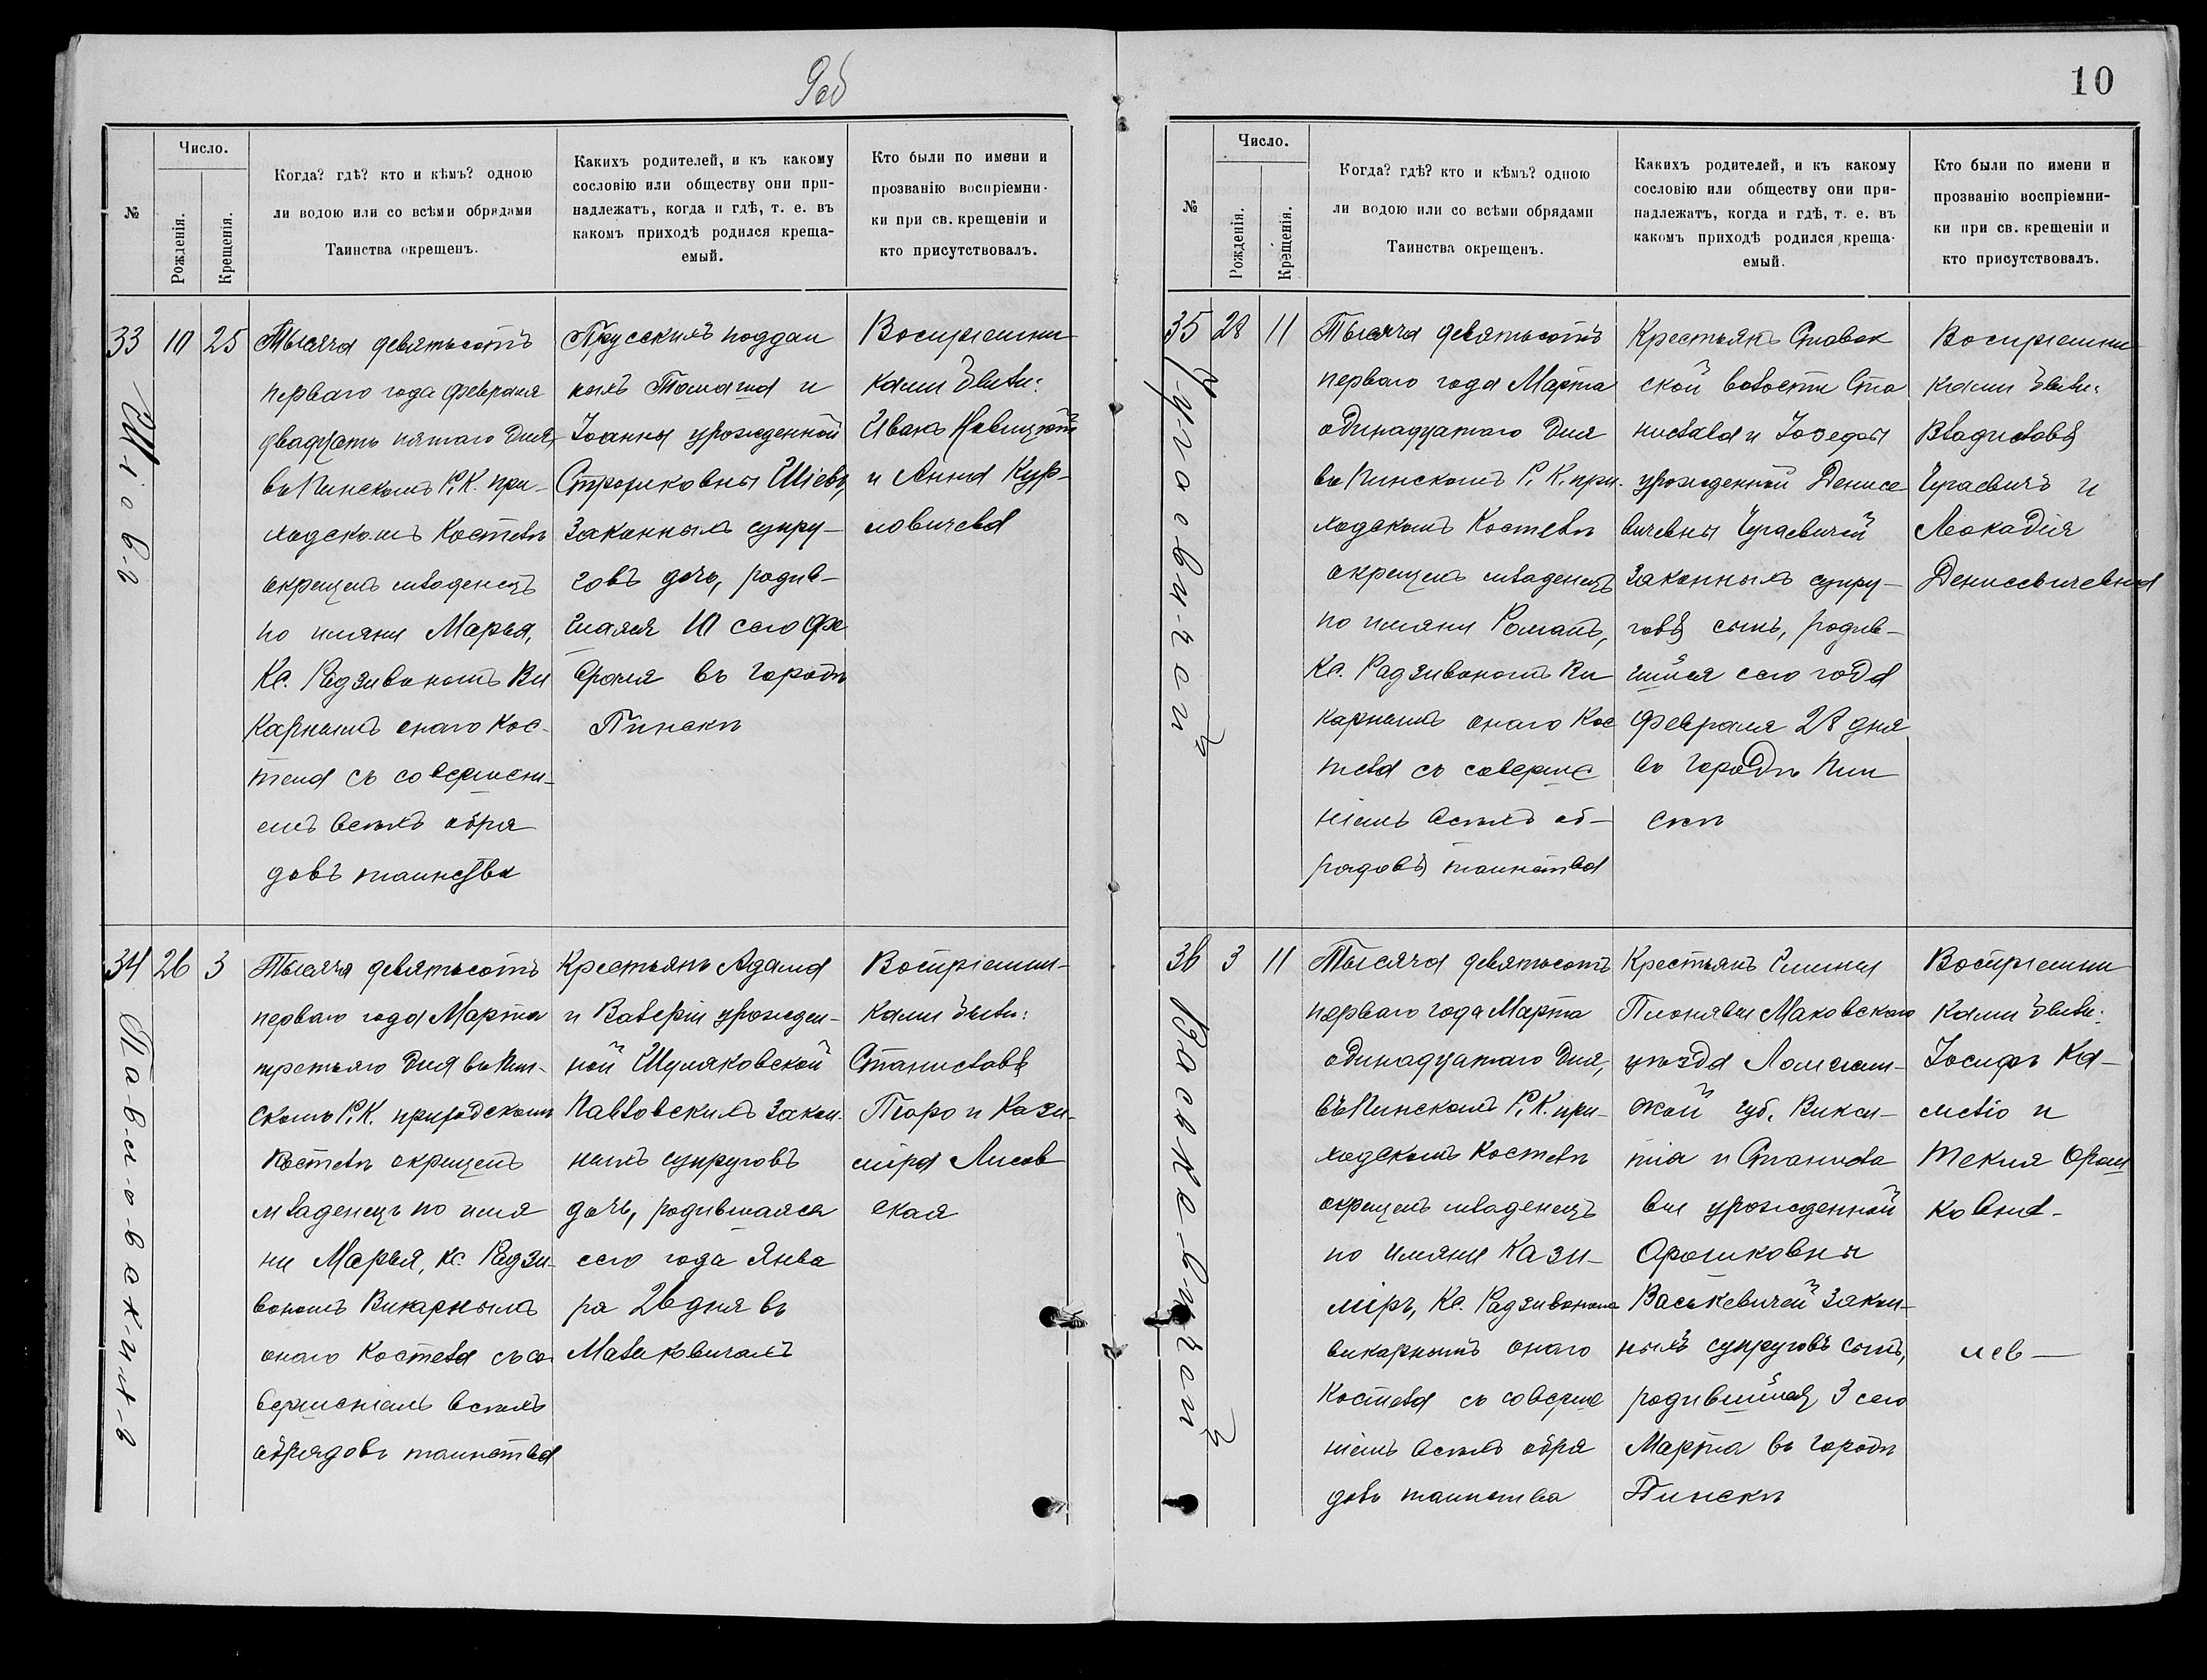 9об
№
Число.
Рожденія.
Крещенія.
Когда? гдѣ? кто и кѣмъ? одною
ли водою или со всѣми обрядами
Таинства окрещенъ.
Какихъ родителей, и къ какому
сословію или обществу они при-
надлежатъ, когда и гдѣ, т. е. въ
какомъ приходѣ родился креща-
емый.
Кто были по имени и
прозванію воспріемни-
ки при св. крещеніи и
кто присутствовалъ.
33
10
25
Тысяча девятьсотъ
перваго года Февраля
двадцать пятаго дня,
въ Пинскомъ Р. К. при-
ходскомъ Костелѣ
окрещенъ младенецъ
по имяни Марья,
Кс. Радзивономъ Ви
карнымъ онаго Кос-
тела съ совершені-
емъ всѣхъ обря
довъ таинства
Прусскихъ поддан
ныхъ Томаша и
Іоанны урожденной
законныхъ супру-
говъ дочь, родив-
шаяся 10 сего Фе
враля въ городѣ
Пинскѣ
Воспріемни-
ками были:
Иванъ
и Анна
34
26
3
Павловскихъ
Тысяча девятьсотъ
перваго года Марта
третьяго дня въ Пин-
скомъ Р. К. приходскомъ
Костелѣ окрещенъ
младенецъ по имя
ни Марья, Кс. Радзи-
вономъ Викарнымъ
онаго Костела съ со-
вершеніемъ всѣхъ
обрядовъ таинства
Крестьянъ Адама
и Валеріи урожден-
ной Шуляковской
Павловскихъ закон-
ныхъ супруговъ
дочь, родившаяся
сего года Янва
ря 26 дня въ
Малыковичахъ
Воспріемни-
ками были:
Станиславъ
Пюро и Кази-
міра Лисов
ская
10
№
Число.
Рожденія.
Крещенія.
Когда? гдѣ? кто и кѣмъ? одною
ли водою или со всѣми обрядами
Таинства окрещенъ.
Какихъ родителей, и къ какому
сословію или обществу они при-
надлежатъ, когда и гдѣ, т. е. въ
какомъ приходѣ родился креща-
емый.
Кто были по имени и
прозванію воспріемни-
ки при св. крещеніи и
кто присутствовалъ.
35
28
11
Тысяча девятьсотъ
перваго года Марта
одинадцатаго дня
въ Пинскомъ Р. К. при-
ходскомъ Костелѣ
окрещенъ младенецъ
по имяни Романъ,
Кс. Радзивономъ Ви
карнымъ онаго Кос
тела съ соверше
ніемъ всѣхъ об-
рядовъ таинства
Крестьянъ
ской волости Ста
нислава и Іозефы
урожденной Денисе
вичевны
законныхъ супру-
говъ сынъ, родив-
шійся сего года
Февраля 28 дня
въ городѣ Пин
скѣ
Воспріемни
ками были:
Владиславъ
и
Леокадія
Денисевичевна
36
3
11
Васькевичей
Тысяча девятьсотъ
перваго года Марта
одинадцатаго дня,
въ Пинскомъ Р. К. при-
ходскомъ Костелѣ
окрещенъ младенецъ
по имяни Кази-
міръ, Кс. Радзивономъ
викарнымъ онаго
Костела съ соверше
ніемъ всѣхъ обря
довъ таинства
Крестьянъ Гмины
Маковскаго
уѣзда Ломжин-
ской губ. Викен-
тія и Станисла
вы урожденной
Орошковны
Васькевичей закон-
ныхъ супруговъ сынъ,
родившійся 3 сего
Марта въ городѣ
Пинскѣ
Воспріемни
ками были:
Іосифъ
и
Текля Орош
ковна-